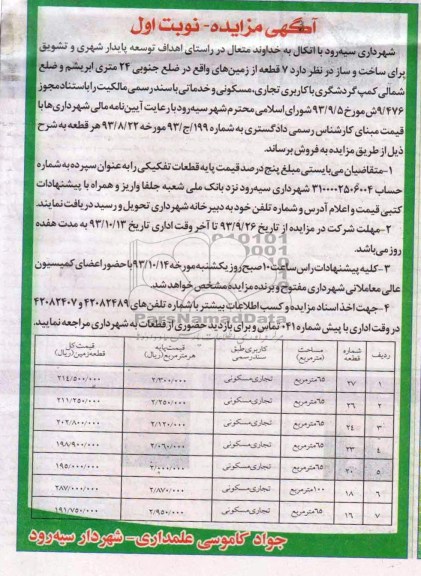 آگهی مزایده - نوبت اول
شهرداری سیه‌رود با اتکال به خداوند متعال در راستای اهداف توسعه پایدار شهری و تشویق
برای ساخت و ساز در نظر دارد ۷ قطعه از زمین‌های واقع در ضلع جنوبی ۲۴ متری ابریشم و ضلع
شمالی کمپ گردشگری با کاربری تجاری، مسکونی و خدماتی با سند رسمی مالکیت را با استناد مجوز
۹/۴۷۶ش مورخ ۹۳/۹/۵ شورای اسلامی محترم شهر سیه‌رود با رعایت آیین‌نامه مالی شهرداری‌ها با
قیمت مبنای کارشناس رسمی دادگستری به شماره ۱۹۹/ج/۹۳ مورخه ۹۳/۸/۲۲ هر قطعه به شرح
ذیل از طریق مزایده به فروش برساند.
۱- متقاضیان می‌بایستی مبلغ پنج درصد قیمت پایه قطعات تفکیکی را به عنوان سپرده به شماره
حساب ۳۱۰۰۰۰۲۵۰۶۰۰۴ شهرداری سیه‌رود نزد بانک ملی شعبه جلفا واریز و همراه با پیشنهادات
کتبی قیمت و اعلام آدرس و شماره تلفن خود به دبیرخانه شهرداری تحویل و رسید دریافت نمایند.
۲- مهلت شرکت در مزایده از تاریخ ۹۳/۹/۲۶ تا آخر وقت اداری تاریخ ۹۳/۱۰/۱۳ به مدت هفده
روز می‌باشد.
۳- کلیه پیشنهادات راس ساعت ۱۰ صبح روز یکشنبه مورخه ۹۳/۱۰/۱۴ با حضور اعضای کمیسیون
عالی معاملاتی شهرداری مفتوح و برنده مزایده مشخص خواهد شد.
۴- جهت اخذ اسناد مزایده و کسب اطلاعات بیشتر با شماره تلفن‌های ۴۲۰۸۲۴۸۹ و ۴۲۰۸۲۴۰۷
در وقت اداری با پیش شماره ۰۴۱ تماس و برای بازدید حضوری از قطعات به شهرداری مراجعه نمایید.
ردیف شماره قطعه مساحت (مترمربع) کاربری طبق سند رسمی قیمت پایه هر مترمربع (ریال) قیمت کل قطعه زمین (ریال)
۱ ۲۷ ۶۵مترمربع تجاری‌مسکونی ۲/۳۰۰/۰۰۰ ۲۱۴/۵۰۰/۰۰۰
۲ ۲۶ ۶۵مترمربع تجاری‌مسکونی ۲/۲۵۰/۰۰۰ ۲۱۱/۲۵۰/۰۰۰
۳ ۲۴ ۶۵مترمربع تجاری‌مسکونی ۲/۱۲۰/۰۰۰ ۲۰۲/۸۰۰/۰۰۰
۴ ۲۳ ۶۵مترمربع تجاری‌مسکونی ۲/۰۶۰/۰۰۰ ۱۹۸/۹۰۰/۰۰۰
۵ ۲۰ ۶۵مترمربع تجاری‌مسکونی ۲/۰۰۰/۰۰۰ ۱۹۵/۰۰۰/۰۰۰
۶ ۱۸ ۱۰۰مترمربع تجاری‌مسکونی ۲/۸۷۰/۰۰۰ ۲۸۷/۰۰۰/۰۰۰
۷ ۱۶ ۶۵مترمربع تجاری‌مسکونی ۲/۹۵۰/۰۰۰ ۱۹۱/۷۵۰/۰۰۰
جواد کاموسی علمداری - شهردار سیه‌رود